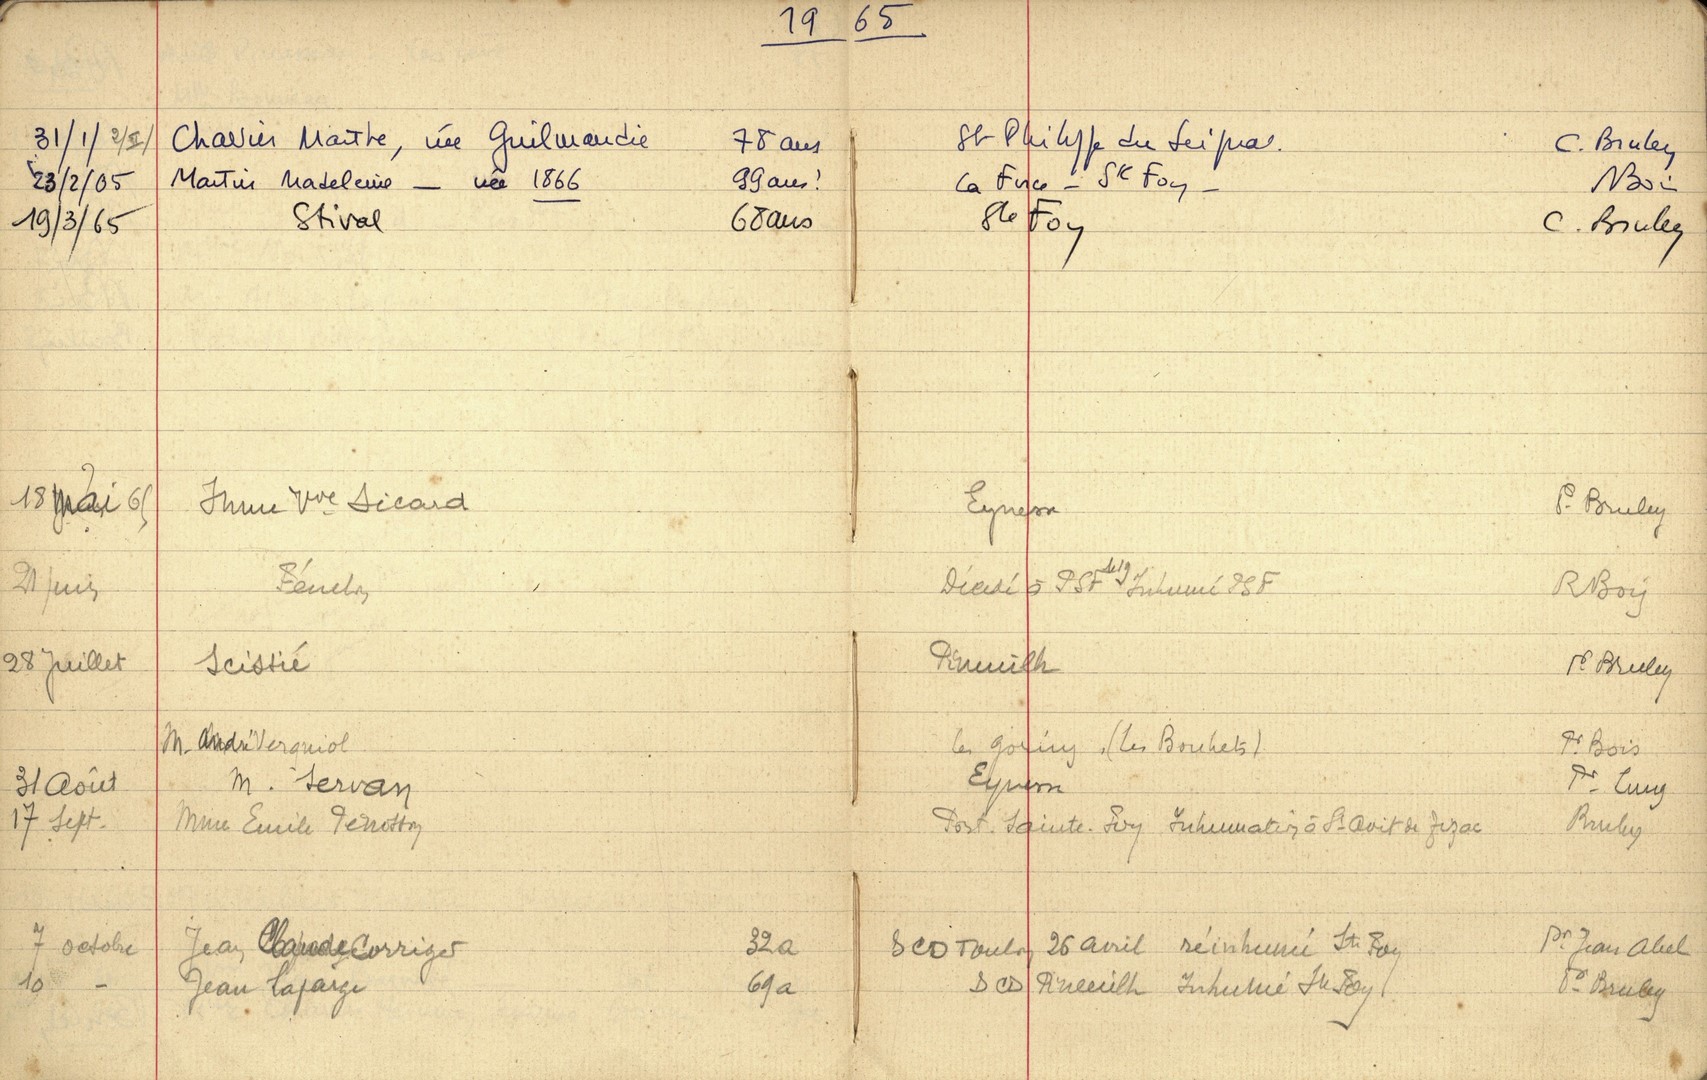 19 65
31/1/ 2/II/ Charrier Marthe, née Guilmandie 78 ans St Philippe du Seignal. C. Bruley
23/2/65 Martin Madeleine — née 1866 99 ans! La Force - Ste Foy - RBois
19/3/65 Stival 68 ans Ste Foy C. Bruley
18 mai 65 ? Mme Vve Sicard Eynesse P. Bruley
21 juin Fénelon Décédé à PSF Inhumé PSF RBois
28 Juillet Scistié Pineuilh Pr Bruley
M. André Vergniol les (Les Bouhets) Pr Bois
31 Août M. Servan Eynesse Pr Lung
17 Sept. Mme Emile Port. Sainte. Foy Inhumation à St Avit de Bruley
7 octobre Jean Claude Corriger 32a DCD Toulon 26 avril réinhumé Ste Foy Pr Jean Abel
10 - Jean Lafarge 69a DCD Pineuilh Inhumé Ste Foy Pr Bruley